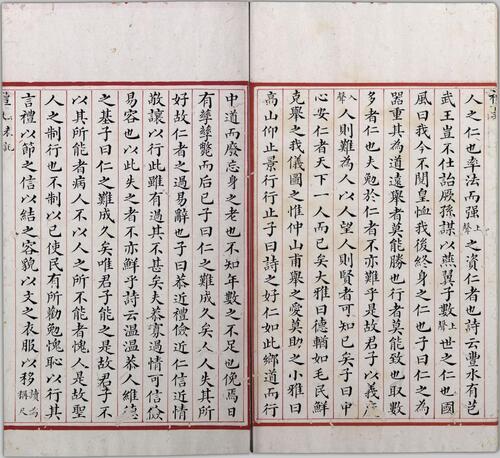 人之仁也率法而强上聲之資仁者也詩云豐水有芑
武王豈不仕詒厥孫謀以燕翼子數上聲世之仁也國
風曰我今不閱皇恤我後終身之仁也子曰仁之為
器重其為道遠舉者莫能勝也行者莫能致也取數
多者仁也夫勉於仁者不亦難乎是故君子以義度
入聲人則難為人以人望人則賢者可知已矣子曰中
心安仁者天下一人而已矣大雅曰德輶如毛民鮮
克舉之我儀圖之惟仲山甫舉之愛莫助之小雅曰
高山仰止景行行止子曰詩之好仁如此鄉道而行
中道而廢忘身之老也不知年數之不足也俛焉日
有孳孳斃而后已子曰仁之難成久矣人人失其所
好故仁者之過易辭也子曰恭近禮儉近仁信近情
敬讓以行此雖有過其不甚矣夫恭寡過情可信儉
易容也以此失之者不亦鮮乎詩云温温恭人維德
之基子曰仁之難成久矣唯君子能之是故君子不
以其所能者病人不以人之所不能者愧人是故聖
人之制行也不制以己使民有所勸勉愧恥以行其
言禮以節之信以結之容貌以文之衣服以移讀為稱尺
表記